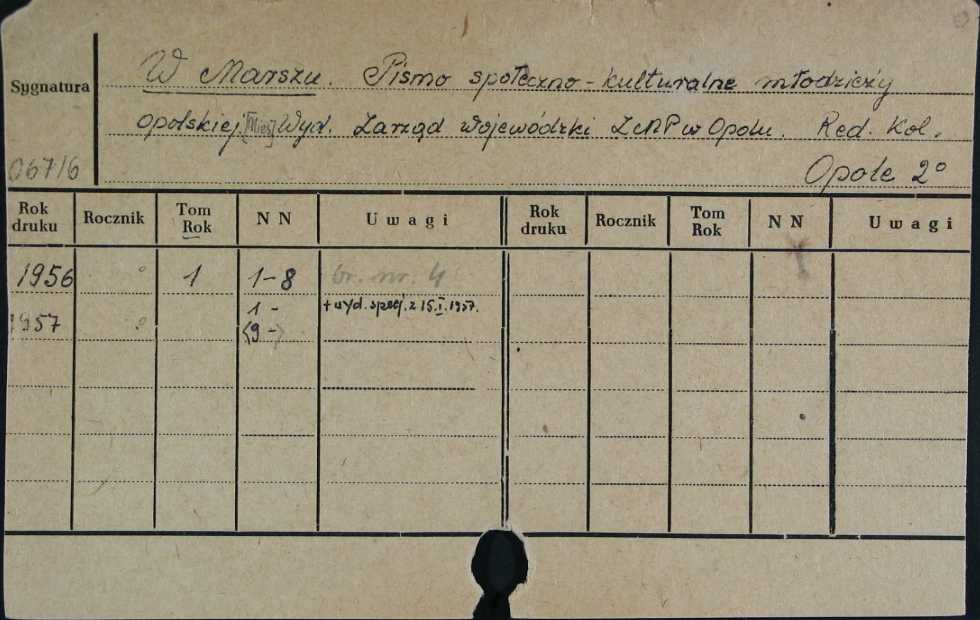 W Marszu. Pismo społeczno-kulturalne młodzieży
Sygnatura
opolskiej. [Mies.] Wyd. Zarząd Wojewódzki ZMP w Opolu. Red. Kol.
06716 Opole 2°
Rok druku Rocznik Tom Rok N N Uwagi Rok druku Rocznik Tom Rok N N Uwagi
1956 1 1-8 br. nr. 4
1- + wyd. specj. z 15.I.1957.
1957 (9-)